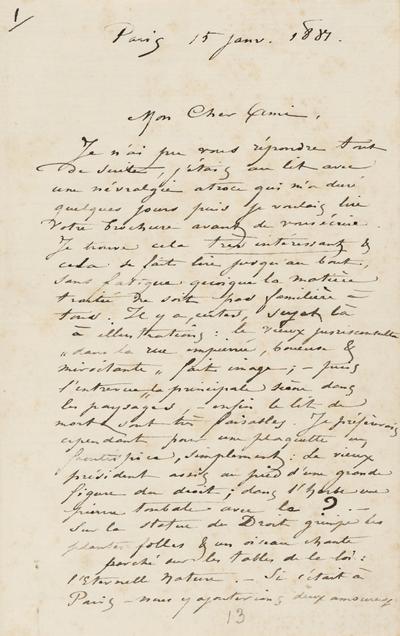 1/
Paris 15 janv. 1881.
Mon Cher Ami,
Je n'ai pu vous répondre tout
de suite, j'étais au lit avec
une névralgie atroce qui m'a duré
quelques jours puis je voulais lire
votre brochure avant de vous écrire.
Je trouve cela très intéressant &
cela se fait lire jusqu'au bout,
sans fatigue quoique la matière
traitée ne soit pas familière à
tous. Il y a, certes, sujet là
à illustrations : le vieux jurisconsulte
"dans la rue empierrée, boueuse &
miroitante" fait image ; – puis
l'entrevue "la principale scène dans
les paysages – enfin le lit de
mort sont très faisables. Je préférerais
cependant pour une plaquette un
frontispice, simplement : le vieux
président assis au pied d'une grande
figure du droit ; dans l'herbe une
pierre tombale avec le ? –
Sur la statue de Droit grimpe les
plantes folles & un oiseau chante
perché sur les tables de la loi :
l'Eternelle Nature. – Si c'était à
Paris – nous y ajouterions deux amoureux
13